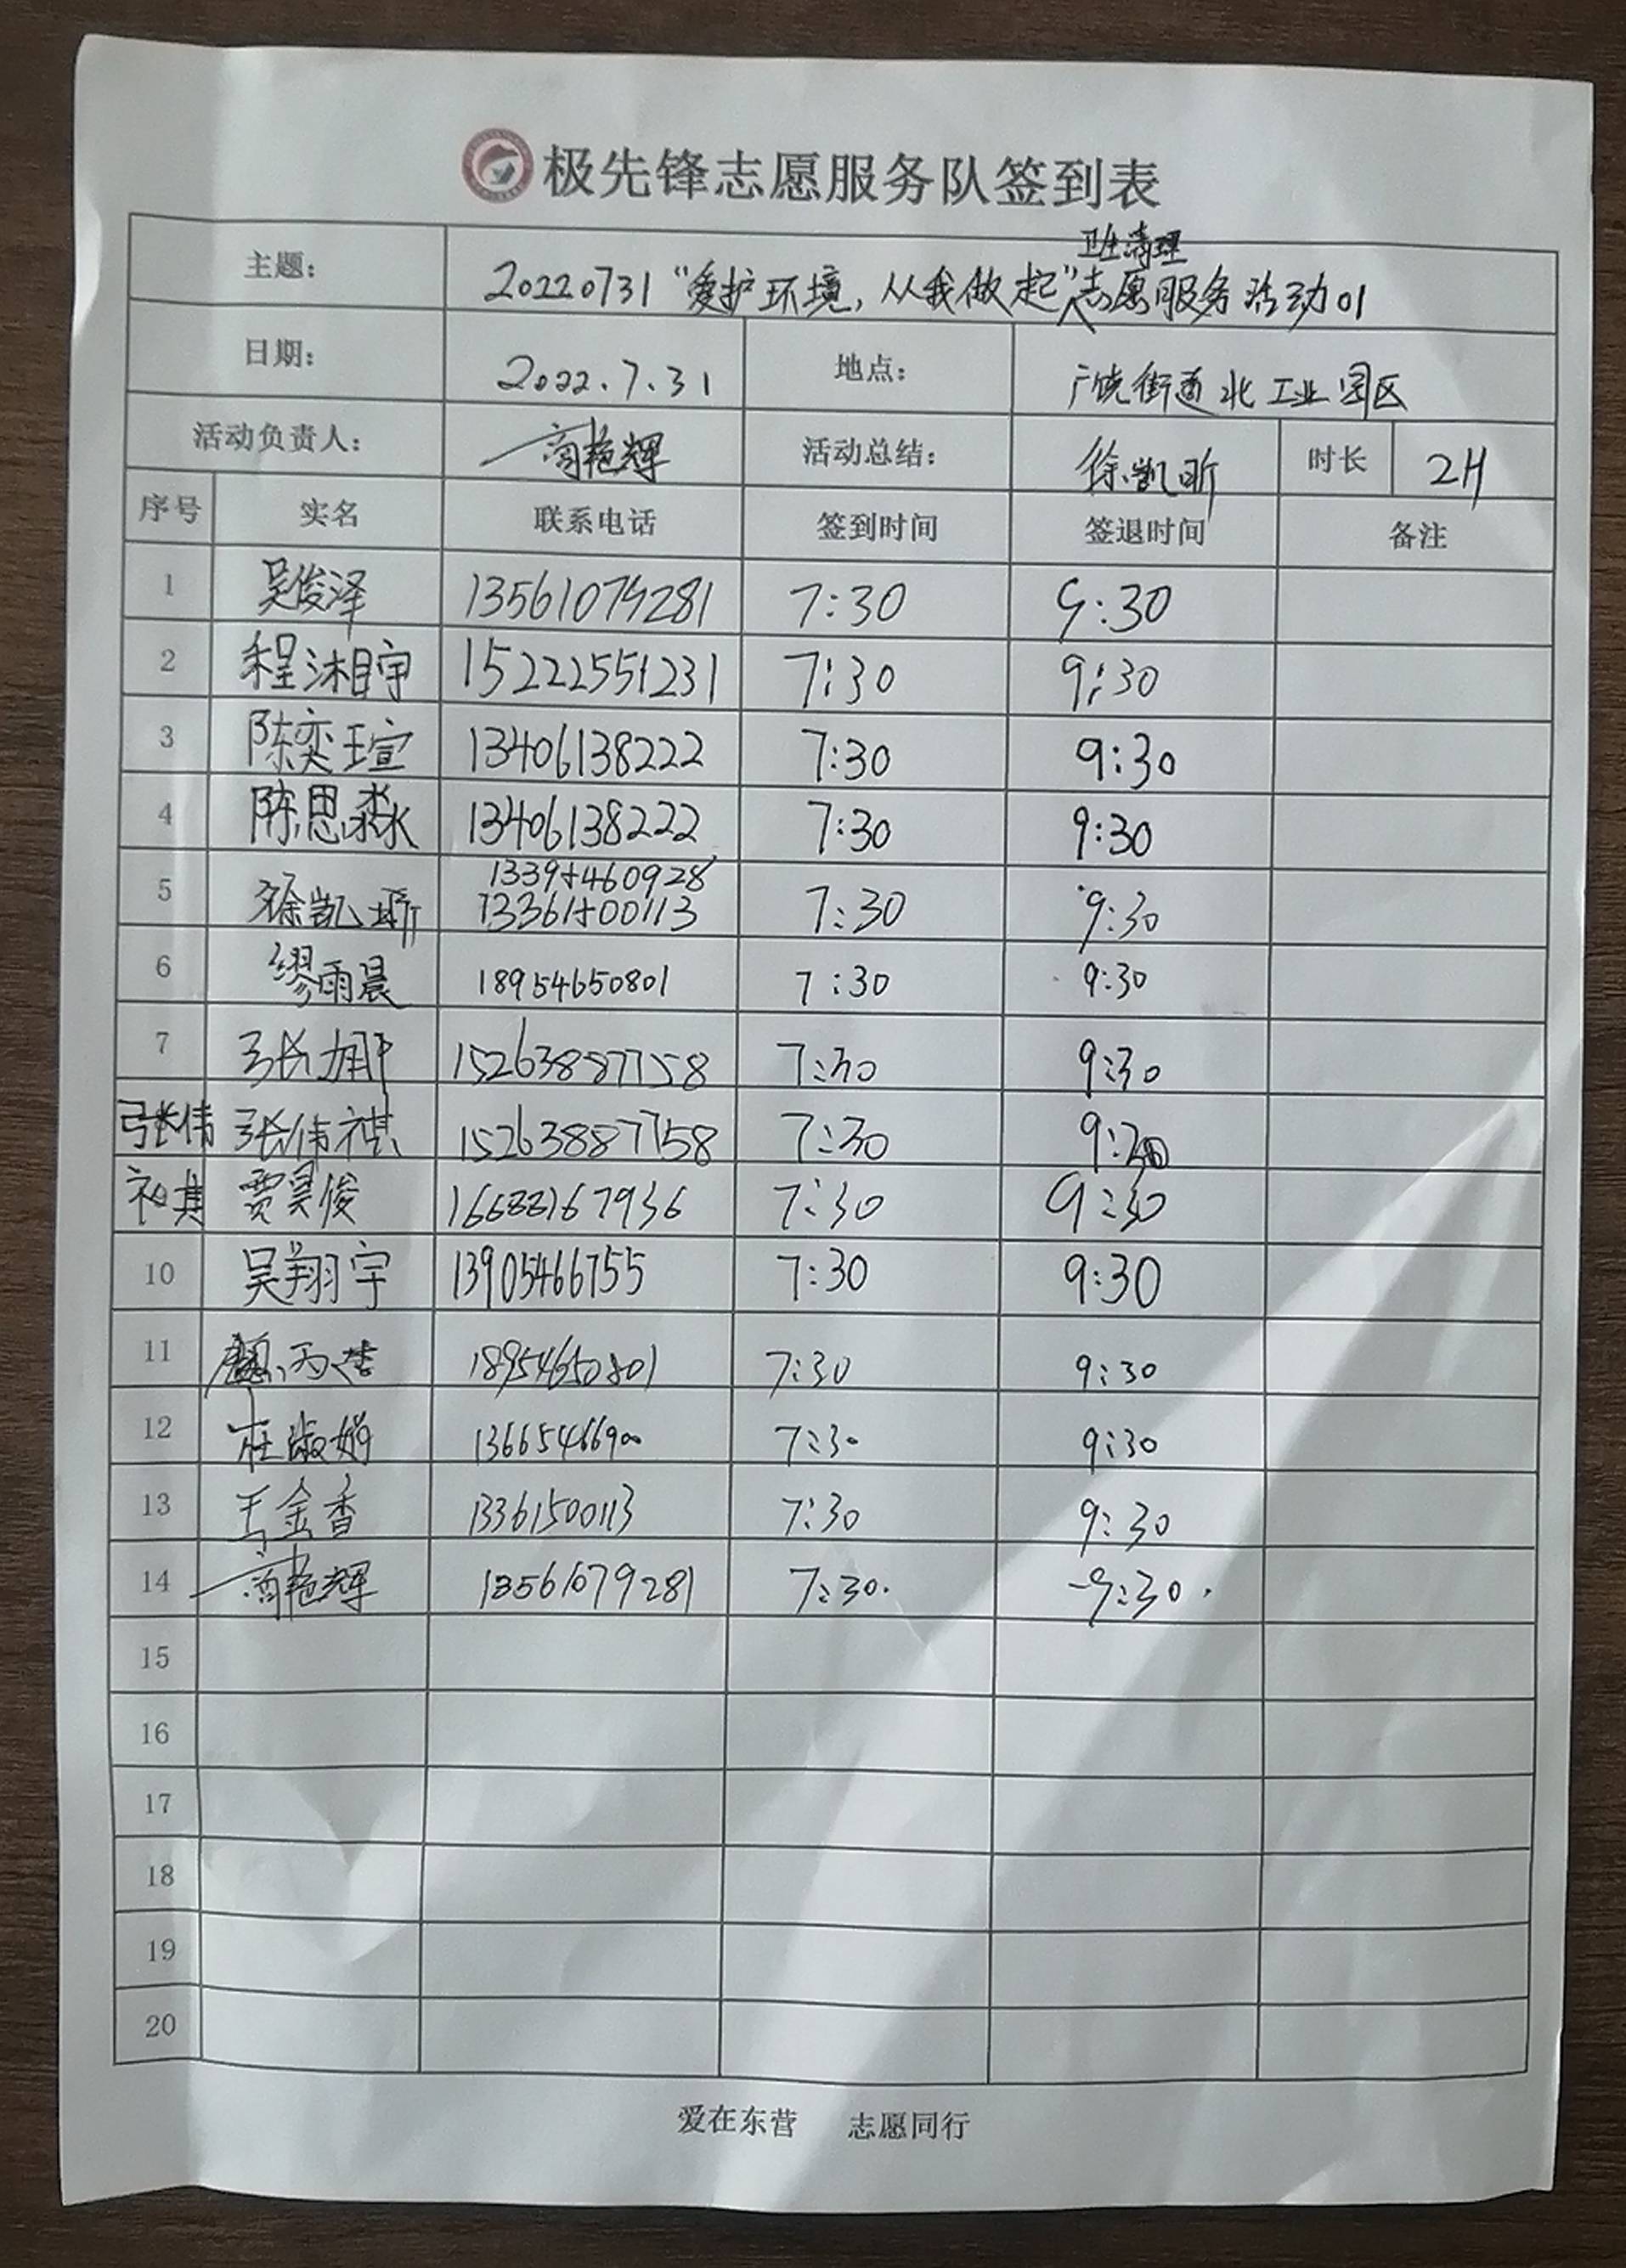 极先锋志愿服务队签到表
卫生清理
主题： 20220731“爱护环境，从我做起”志愿服务活动01
日期： 2022.7.31 地点： 广饶街道北工业园区
活动负责人： 商艳辉 活动总结： 徐凯昕 时长 2H
序号 实名 联系电话 签到时间 签退时间 备注
1 吴俊泽 13561079281 7:30 9:30
2 程沐宇 15222551231 7:30 9:30
3 陈奕瑄 13406138222 7:30 9:30
4 陈思淼 13406138222 7:30 9:30
1339+460928
5 徐凯 13361+00113 7:30 9:30
6 缪雨晨 18954650801 7:30 9:30
7 张 15263887758 7:30 9:30
张伟 张伟祺 15263887758 7:30 9:30
祺 贾昊俊 16688167936 7:30 9:30
10 吴翔宇 13905466755 7:30 9:30
11 18954650801 7:30 9:30
12 杜淑娟 13665466900 7:30 9:30
13 王金香 13361500113 7:30 9:30
14 商艳辉 13561079281 7:30. 9:30.
15
16
17
18
19
20
爱在东营 志愿同行